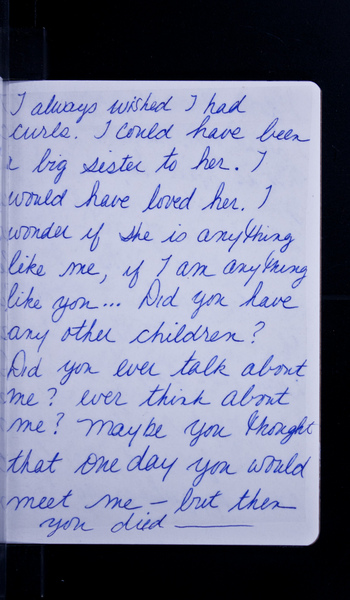 I always wished I had
curls. I could have been
a big sister to her. I
would have loved her. I
wonder if she is anything
like me, if I am anything
like you... Did you have
any other children?
Did you ever talk about
me? ever think about
me? Maybe you thought
that one day you would
meet me – but then
you died ——